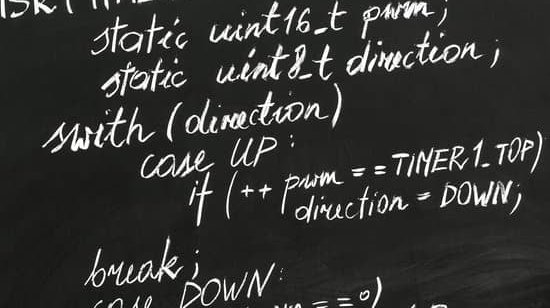 static uint16_t pwm;
static uint8_t direction;
swith (direction)
case UP:
if (++ pwm == TIMER1_TOP)
direction = DOWN;
break;
case DOWN:
== 0)